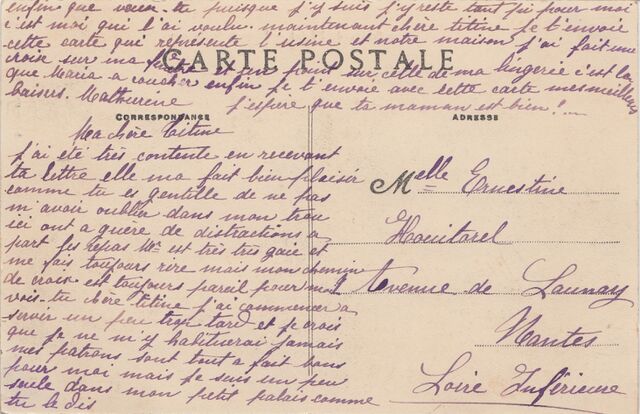 enfin que veux tu puisque j'y suis j'y reste tant pis pour moi
c'est moi qui l'ai voulu maintenant chère titine je t'envoie
cette carte qui représente l'usine et notre maison j'ai fait une
croix sur ma et un point sur celle de ma lingerie c'est là
que Maria a couché enfin je t'envoie avec cette carte mes meilleurs
baisers. Mathurine j'espère que ta maman est bien!
CARTE POSTALE
CORRESPONDANCE
Ma chère Titine
j'ai été très contente en recevant
ta lettre elle ma fait bien plaisir
comme tu es gentille de ne pas
m'avoir oublier dans mon trou
ici ont a guère de distractions a
part les repas Mr est très très gaie et
me fais toujours rire mais mon chemin
de croix est toujours pareil pour moi
vois-tu chère titine j'ai commencer a
servir un peu trop tard et je crois
que je ne m'y habituerai jamais
mes patrons sont tout a fait bons
pour moi mais je suis un peu
seule dans mon petit palais comme
tu le dis
ADRESSE
Melle Ernestine
Houitorel
1 Avenue de Launay
Nantes
Loire Inférieure